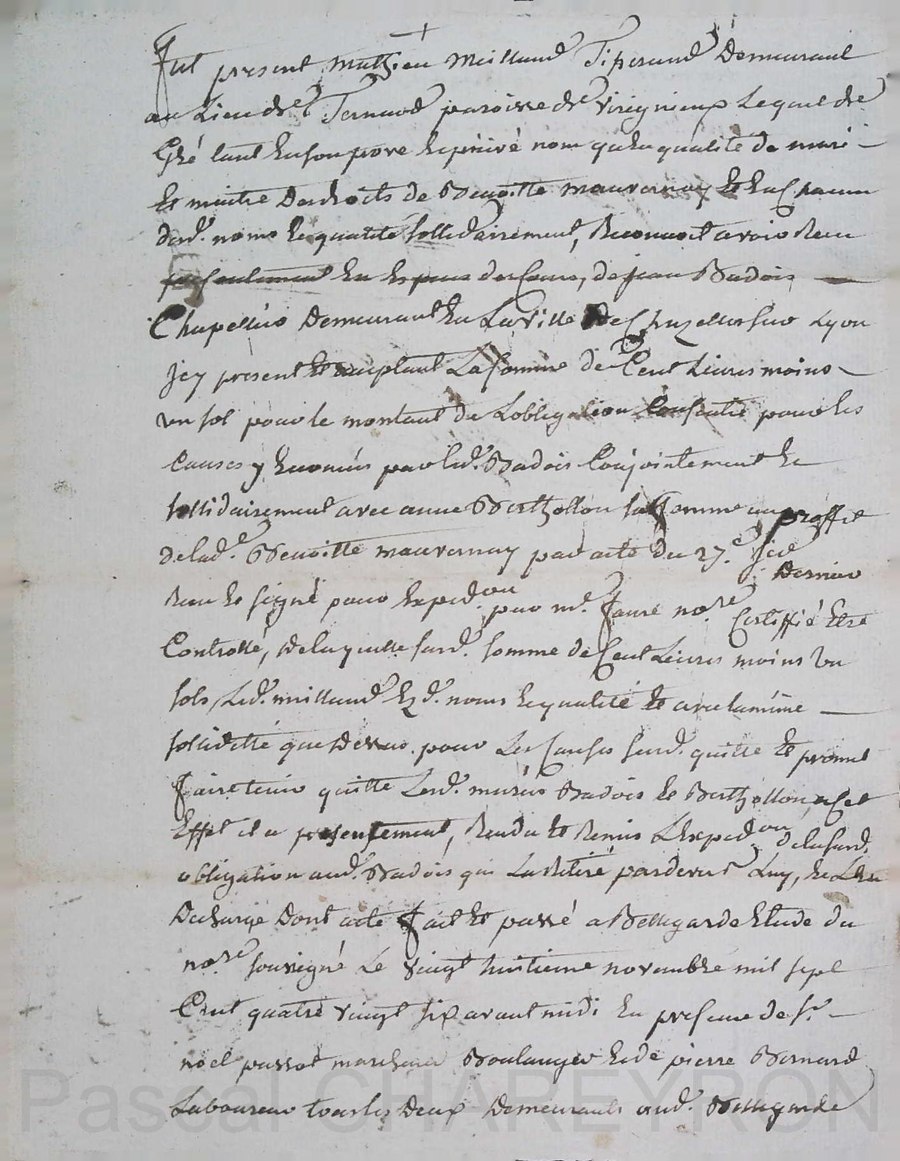 Fut present Mathieu Meilland Tisserand Demeurant
au Lieu de Ternaud paroisse de Virignieux Lequel de
Gré tant en son pore et privé nom qu'en qualité de mari
et maitre des droits de Benoitte mauvernay et en Chacun
desd. noms et qualité sollidairement, Reconnoit avoir Recu
en Espece de Cours, de jean Badois
Chapellier Demeurant En La Ville de Chazelles sur Lyon
jcy present et acceptant La somme de Cent Livres moins
un sol pour le montant de Lobligation Consentie pour les
Causes y Enoncés par led. Badois Conjointement et
sollidairement avec anne Berthollon sa femme au proffit
de lad.e Benoitte mauvernay par acte du 27.e
Dernier
Recu et signé pour Expedon par me. faure nore. Certiffié Etre
Controllé, de laquelle surd. somme de Cent Livres moins un
sols, Led. meilland Esd. noms et qualité et avec la même
solliditté que Dessus, pour Les Causes surd. quitte et promet
faire tenir quitte Lesd. mariés Badois et Berthollon, a Cet
Effet il a presentement, Rendu et Remis L'Expedon de la surd.
obligation aud. Badois qui La Retiré pardevers Luy, et L'En
Decharge Dont acte fait et passé a Bellegarde Etude du
nore. soussigné Le vingt huitieme novembre mil sept
Cent quatre vingt six avant midi En presence de sr.
noel passot marchand Boulanger et de pierre Bernard
Laboureur tous les Deux Demeurants aud. Bellegarde
Pascal CHAREYRON